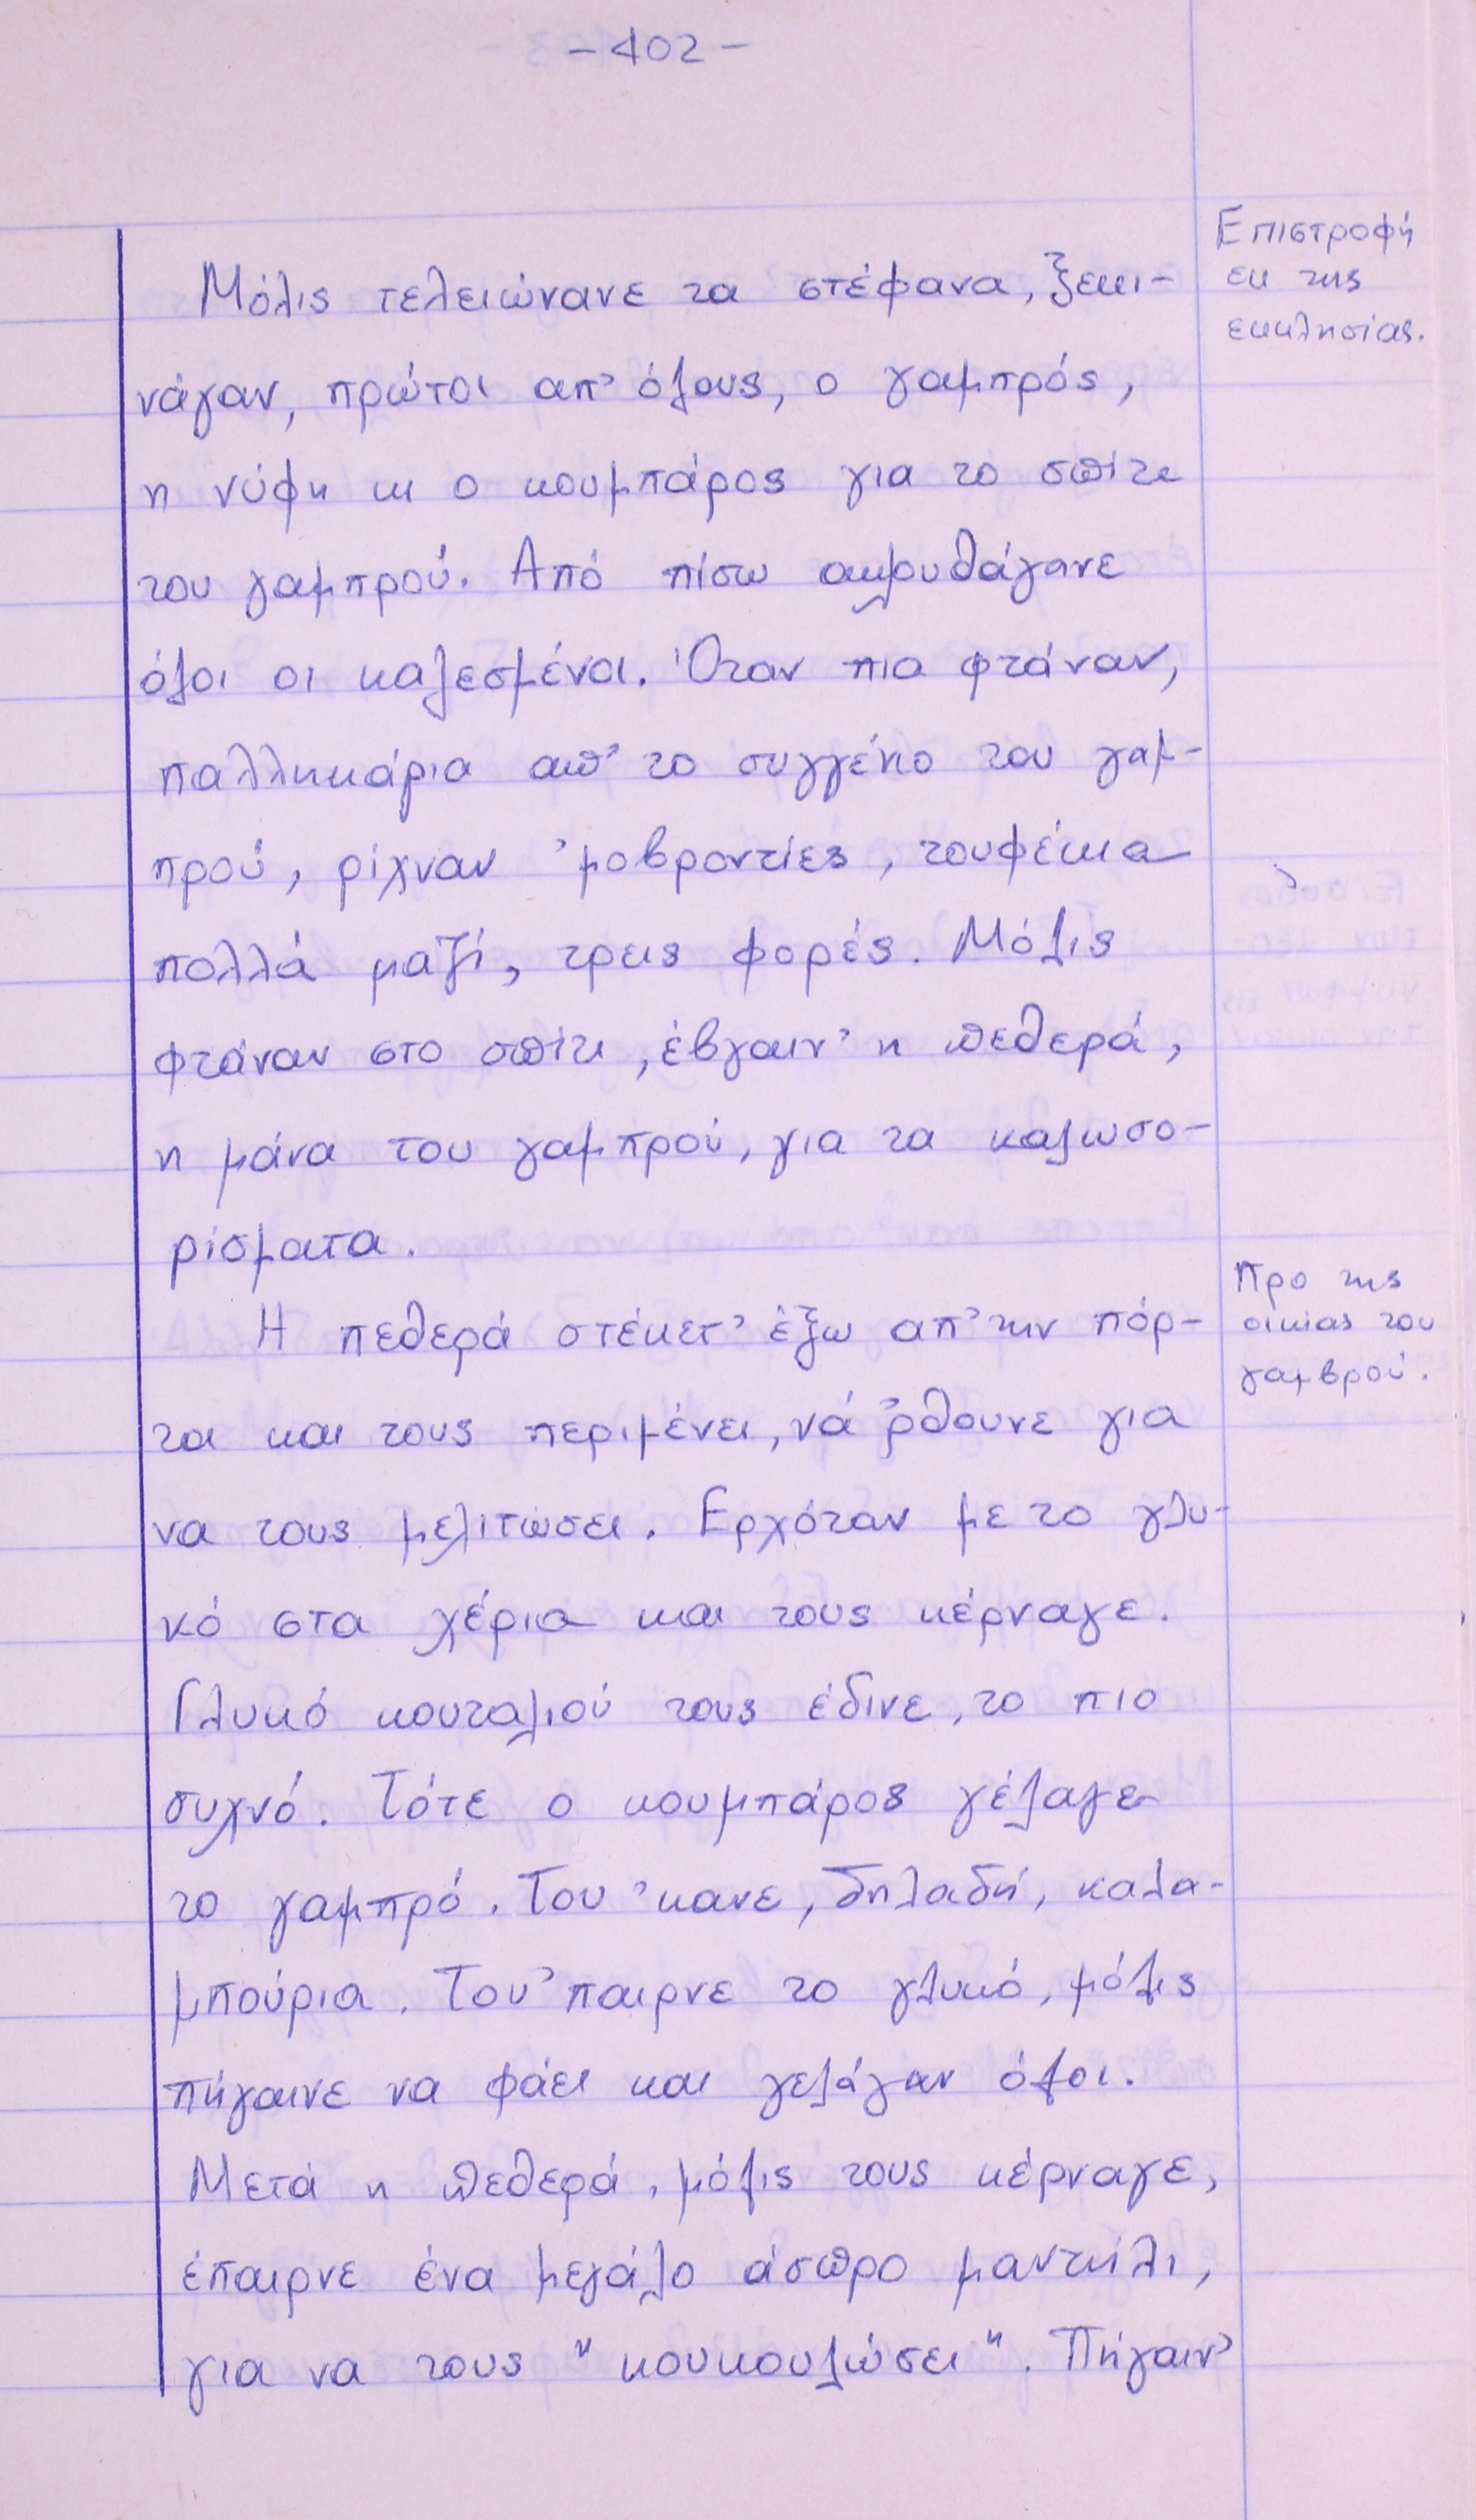 - 402 -
Επιστροφή
εκ της
εκκλησίας.
Μόλις τελειώνανε τα στέφανα, ξεκι-
νάγαν, πρώτοι απ' όλους, ο γαμπρός,
η νύφη κι ο κουμπάρος για το σπίτι
του γαμπρού. Από πίσω ακλουθάγανε
όλοι οι καλεσμένοι. Όταν πια φτάναν,
παλληκάρια απ' το συγγένιο του γαμ-
πρού, ρίχναν 'μοβροντίες, τουφέκια
πολλά μαζί, τρεις φορές. Μόλις
φτάναν στο σπίτι, έβγαιν' η πεθερά,
η μάνα του γαμπρού, για τα καλωσο-
ρίσματα.
Προ της
οικίας του
γαμβρού.
Η πεθερά στέκετ' έξω απ' την πόρ-
τα και τους περιμένει, νά 'ρθουνε για
να τους μελιτώσει. Ερχόταν με το γλυ-
κό στα χέρια και τους κέρναγε.
Γλυκό κουταλιού τους έδινε, το πιο
συχνό. Τότε ο κουμπάρος γέλαγε
το γαμπρό. Του 'κανε, δηλαδή, καλα-
μπούρια. Του 'παιρνε το γλυκό, μόλις
πήγαινε να φάει και γελάγαν όλοι.
Μετά η πεθερά, μόλις τους κέρναγε,
έπαιρνε ένα μεγάλο άσπρο μαντήλι,
για να τους "κουκουλώσει". Πήγαιν'